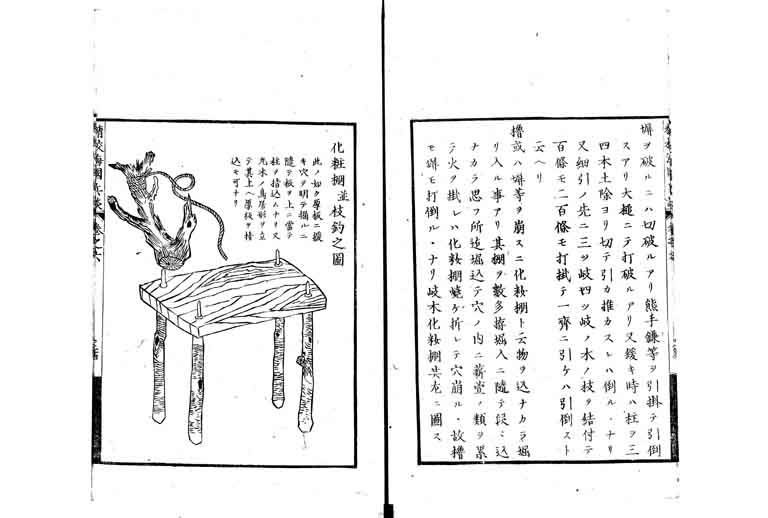 塀ヲ破ルニハ切破ルアリ熊手鎌等ヲ引掛テ引倒
スアリ大槌ニテ打破ルアリ又緩キ時ハ柱ヲ三
四本土際ヨリ切テ引カ推カスレハ倒ル、ナリ
又細引ノ先ニ三ツ岐四ツ岐ノ木ノ枝ヲ結付テ
百條モ二百條モ打掛テ一齊ニ引ケハ引倒スト
云ヘリ
櫓或ハ塀等ヲ崩スニ化粧棚ト云物ヲ込ナカラ堀
リ入ル事アリ其棚ヲ數多拵堀入ニ隨テ段々込
ナカラ思フ所迄堀込テ穴ノ内ニ薪萱ノ類ヲ累
テ火ヲ掛レハ化粧棚燒ケ折レテ穴崩ル、故櫓
モ塀モ打倒ル、ナリ岐木化粧棚共左ニ圖ス
化粧棚並枝釣之圖
此ノ如ク厚板ニ援
キ穴ヲ明テ掘ルニ
隨テ板ヲ上ニ當テ
柱ヲ指込ムナリ又
丸木ノ鳥居形ヲ立
テ其上ヘ厚板ヲ指
込モ可ナリ